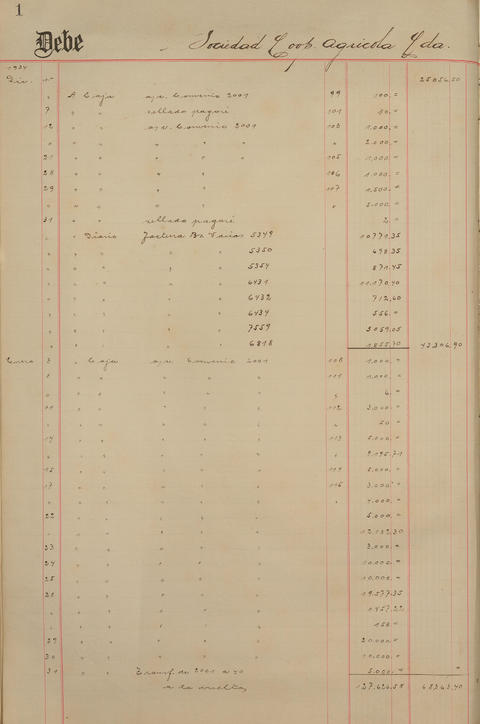 1
Debe Sociedad Coop. Agricola Lda.
1934
Dic. 1º 25856,50
" " A Caja a/c. Convenio 2001 99 100,=
7 " " sellado pagaré 101 80,"
12 " " a/c. Convenio 2001 103 1.000,"
" " " " " " " 2.000,"
21 " " " " " 105 1.000,"
28 " " " " " 106 1.000,"
29 " " " " " 107 1.500,"
" " " " " " " 5.000,"
31 " " sellado pagaré 2,"
" " Diario factura Bs Varios 5349 10771,35
" " " " " 5350 698,35
" " " " " 5354 871,45
" " " " " 6431 11.170,40
" " " " " 6432 712,60
" " " " " 6434 556,"
" " " " " 7559 3059,05
" " " " " 6818 1855,70 43306,90
Enero 2 " Caja a/c. Convenio 2001 108 1.000,"
8 " " " " " 111 1.000,"
" " " " " " " 6,"
11 " " " " " 112 3.000,"
" " " " " " " 50,"
14 " " " " " 113 5.000,"
" " " " " " " 2.195,71
15 " " " " " 114 5.000,"
17 " " " " " 116 3.000,"
" " " " " " " 4.000,"
22 " " " " " 5.000,"
" " " " " " 12.132,30
23 " " " " " 3.000,"
24 " " " " " 10.000,"
25 " " " " " 10.000,"
21 " " " " " 19.577,35
" " " " " " 1457,22
" " " " " " 158,"
29 " " " " " 20.000,"
30 " " " " " 10.000,"
31 " " Transf. de 2001 a 40 5.000,"
a la vuelta 127.626,58 68363,40